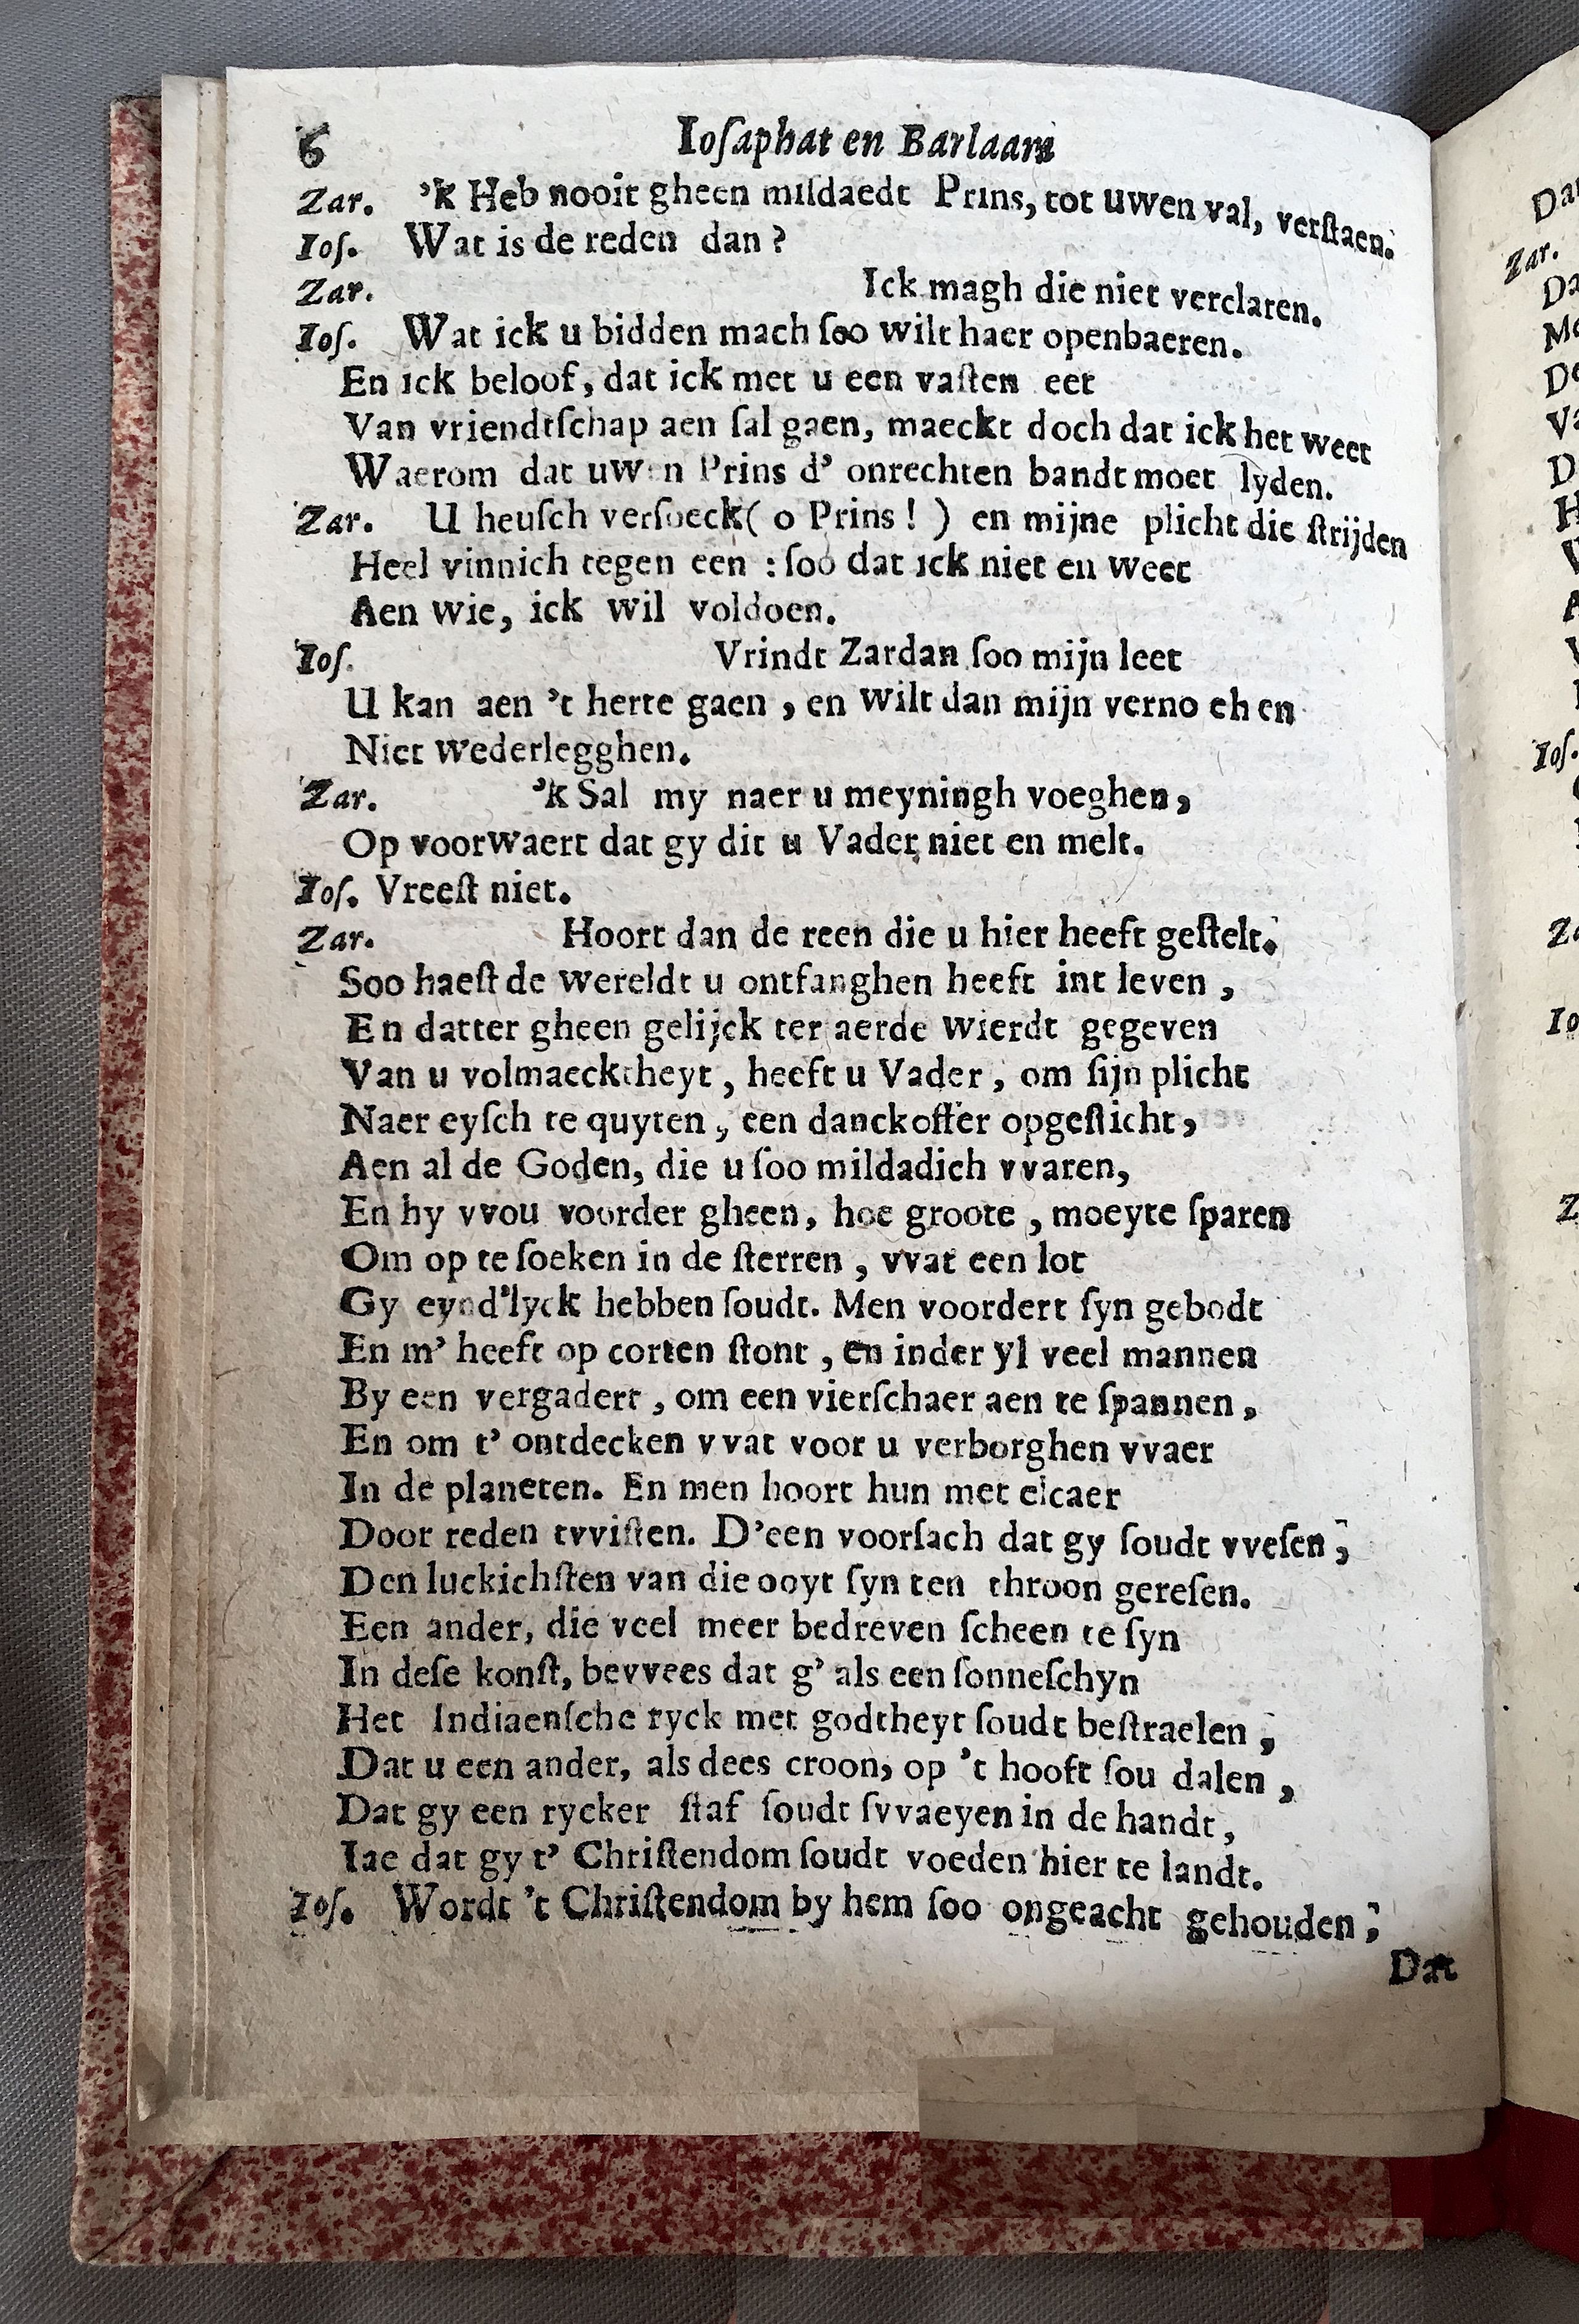 6 Ioſaphat en Barlaam
Zar. 'k Heb nooit gheen miſdaedt Prins, tot uwen val, verſtaen.
Ioſ. Wat is de reden dan?
Zar. Ick magh die niet verclaren.
Ioſ. Wat ick u bidden mach ſoo wilt haer openbaeren.
En ick beloof, dat ick met u een vaſten eet
Van vriendtſchap aen ſal gaen, maeckt doch dat ick het weet
Waerom dat uwen Prins d' onrechten bandt moet lyden.
Zar. U heuſch verſoeck( o Prins! ) en mijne plicht die ſtrijden
Heel vinnich tegen een : ſoo dat ick niet en weet
Aen wie, ick wil voldoen.
Ioſ. Vrindt Zardan ſoo mijn leet
U kan aen 't herte gaen, en wilt dan mijn verno eh en
Niet wederlegghen.
Zar. 'k Sal my naer u meyningh voeghen,
Op voorwaert dat gy dit u Vader niet en melt.
Ioſ. Vreeſt niet.
Zar. Hoort dan de reen die u hier heeft geſtelt.
Soo haeſt de wereldt u ontfanghen heeft int leven,
En datter gheen gelijck ter aerde wierdt gegeven
Van u volmaecktheyt, heeft u Vader, om ſijn plicht
Naer eyſch te quyten, een danckoffer opgeſticht,
Aen al de Goden, die u ſoo mildadich vvaren,
En hy vvou voorder gheen, hoe groote, moeyte ſparen
Om op te ſoeken in de ſterren, vvat een lot
Gy eynd'lyck hebben ſoudt. Men voordert ſyn gebodt
En m' heeft op corten ſtont, en inder yl veel mannen
By een vergadert, om een vierſchaer aen te ſpannen,
En om t' ontdecken vvat voor u verborghen vvaer
In de planeten. En men hoort hun met elcaer
Door reden tvviſten. D'een voorſach dat gy ſoudt vveſen,
Den luckichſten van die ooyt ſyn ten throon gereſen.
Een ander, die veel meer bedreven ſcheen te ſyn
In deſe konſt, bevvees dat g' als een ſonneſchyn
Het Indiaenſche ryck met godtheyt ſoudt beſtraelen,
Dat u een ander, als dees croon, op 't hooft ſou dalen,
Dat gy een rycker ſtaf ſoudt ſvvaeyen in de handt,
Iae dat gy t' Chriſtendom ſoudt voeden hier te landt.
Ioſ. Wordt 't Chriſtendom by hem ſoo ongeacht gehouden,
Dat
Zar.
Ioſ.